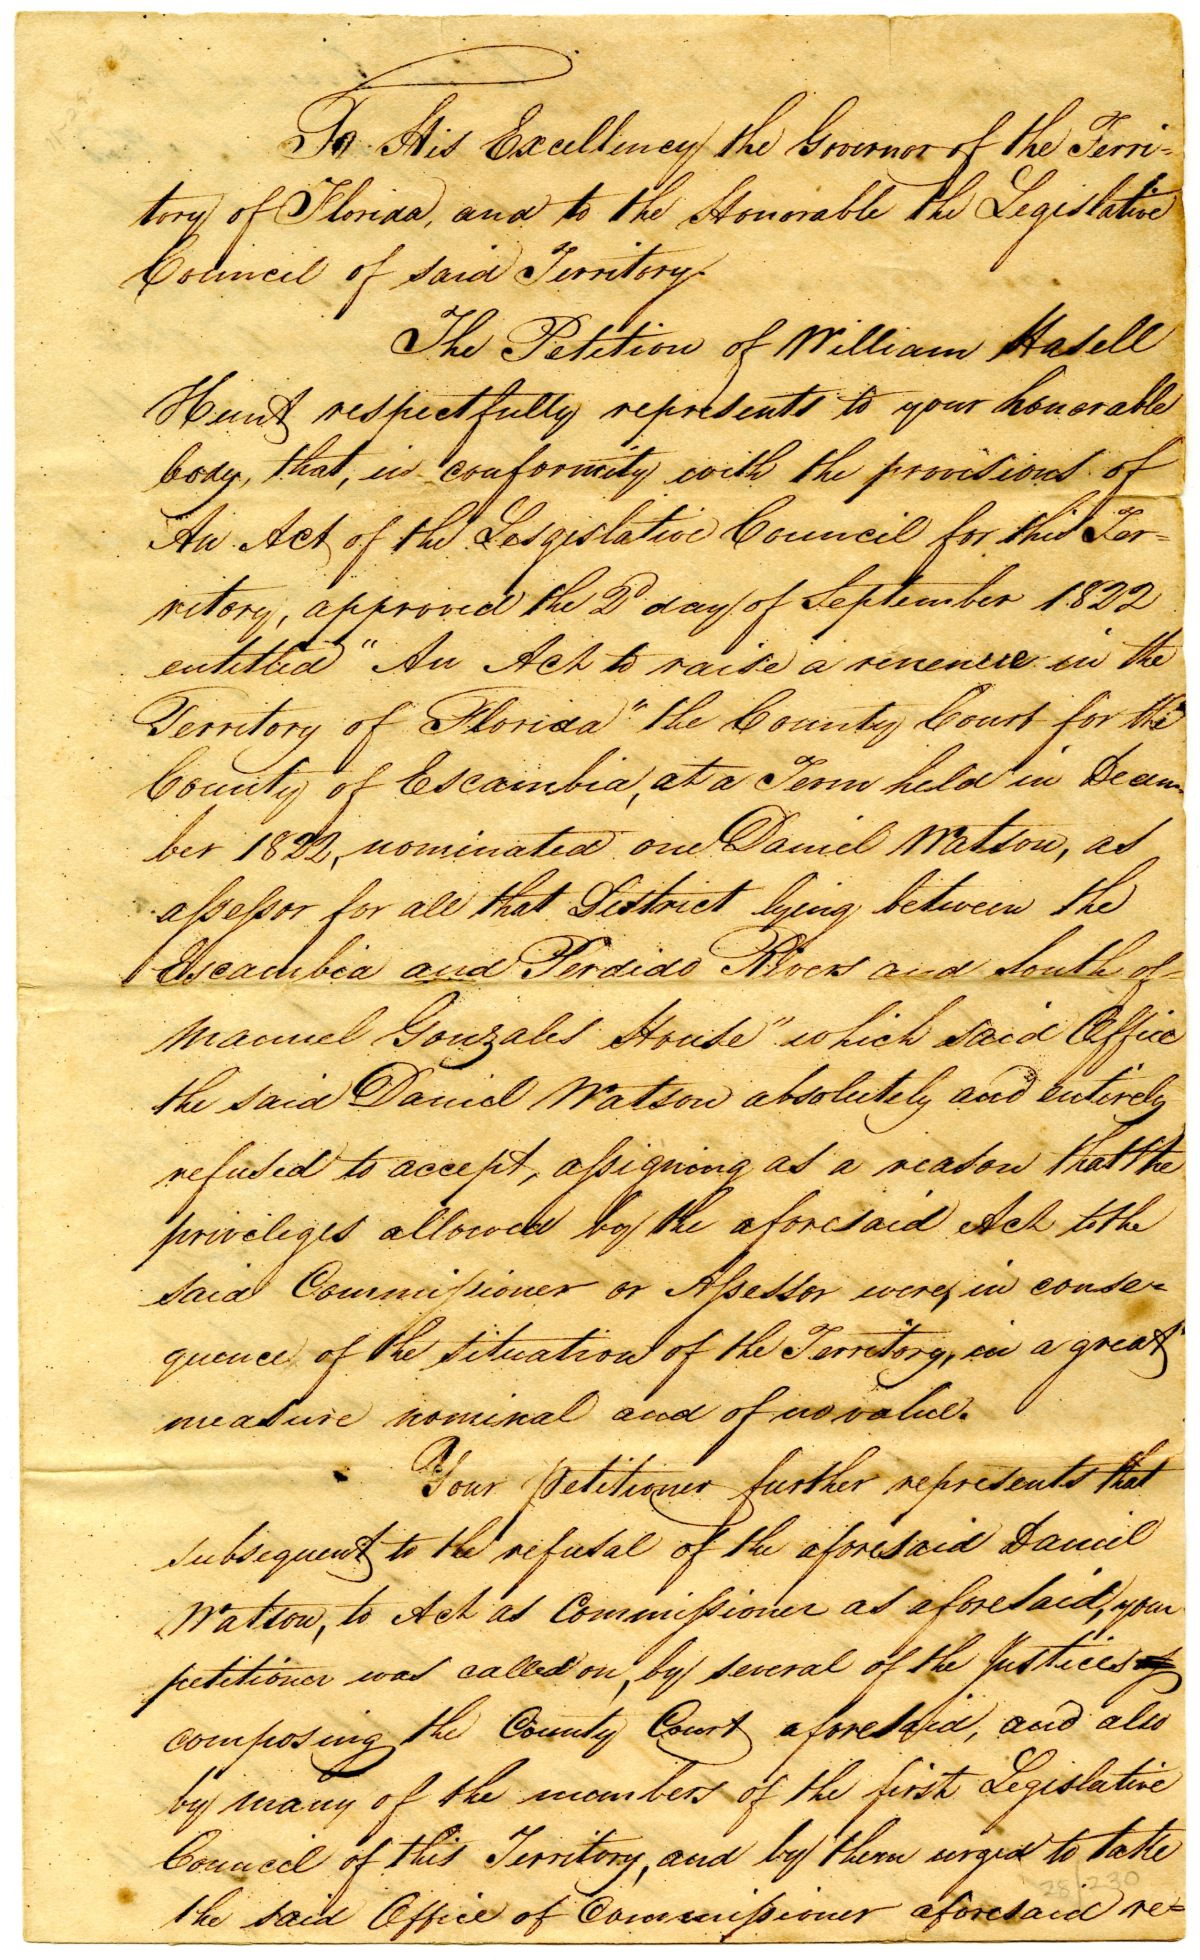 To His Excellency the Governor of the Terri-
tory of Florida, and to the Honorable the Legislative
Council of said Territory.
The Petition of William Hasell
Hunt respectfully represents to your honorable
body, that, in conformity with the provisions of
An Act of the Lesgislative Council for this Ter-
ritory, approved the 2d day of September 1822
entitled "An Act to raise a revenue in the
Territory of Florida" the County Court for the
County of Escambia, at a Term held in Decem-
ber 1822, nominated one Daniel Watson, as
assessor for all that District lying between the
Escambia and Perdido Rivers and South of
Manuel Gonzales House" which said Office
the said Daniel Watson absolutely and entirely
refused to accept, assigning as a reason that the
privileges allowed by the aforesaid Act to the
said Commissioner or Assessor were, in conse-
quence of the situation of the Territory, in a great
measure nominal and of no value.
Your petitioner further represents that
subsequent to the refusal of the aforesaid Daniel
Watson, to Act as Commissioner as aforesaid, your
petitioner was called on, by several of the Justices
composing the County Court aforesaid, and also
by many of the members of the first Legislative
Council of this Territory, and by them urged to take
the said Office of Commissioner aforesaid re-
28/230